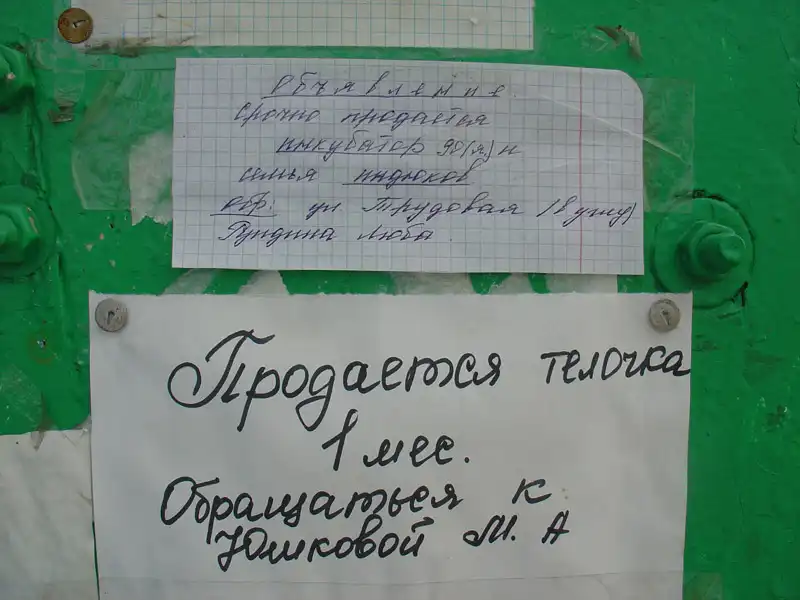 Объявление
срочно продаётся
инкубатор 90(я)и
семья индюков
обр: ул Трудовая
Люба
Продается телочка
1 мес.
Обращаться к
Юшковой М. А